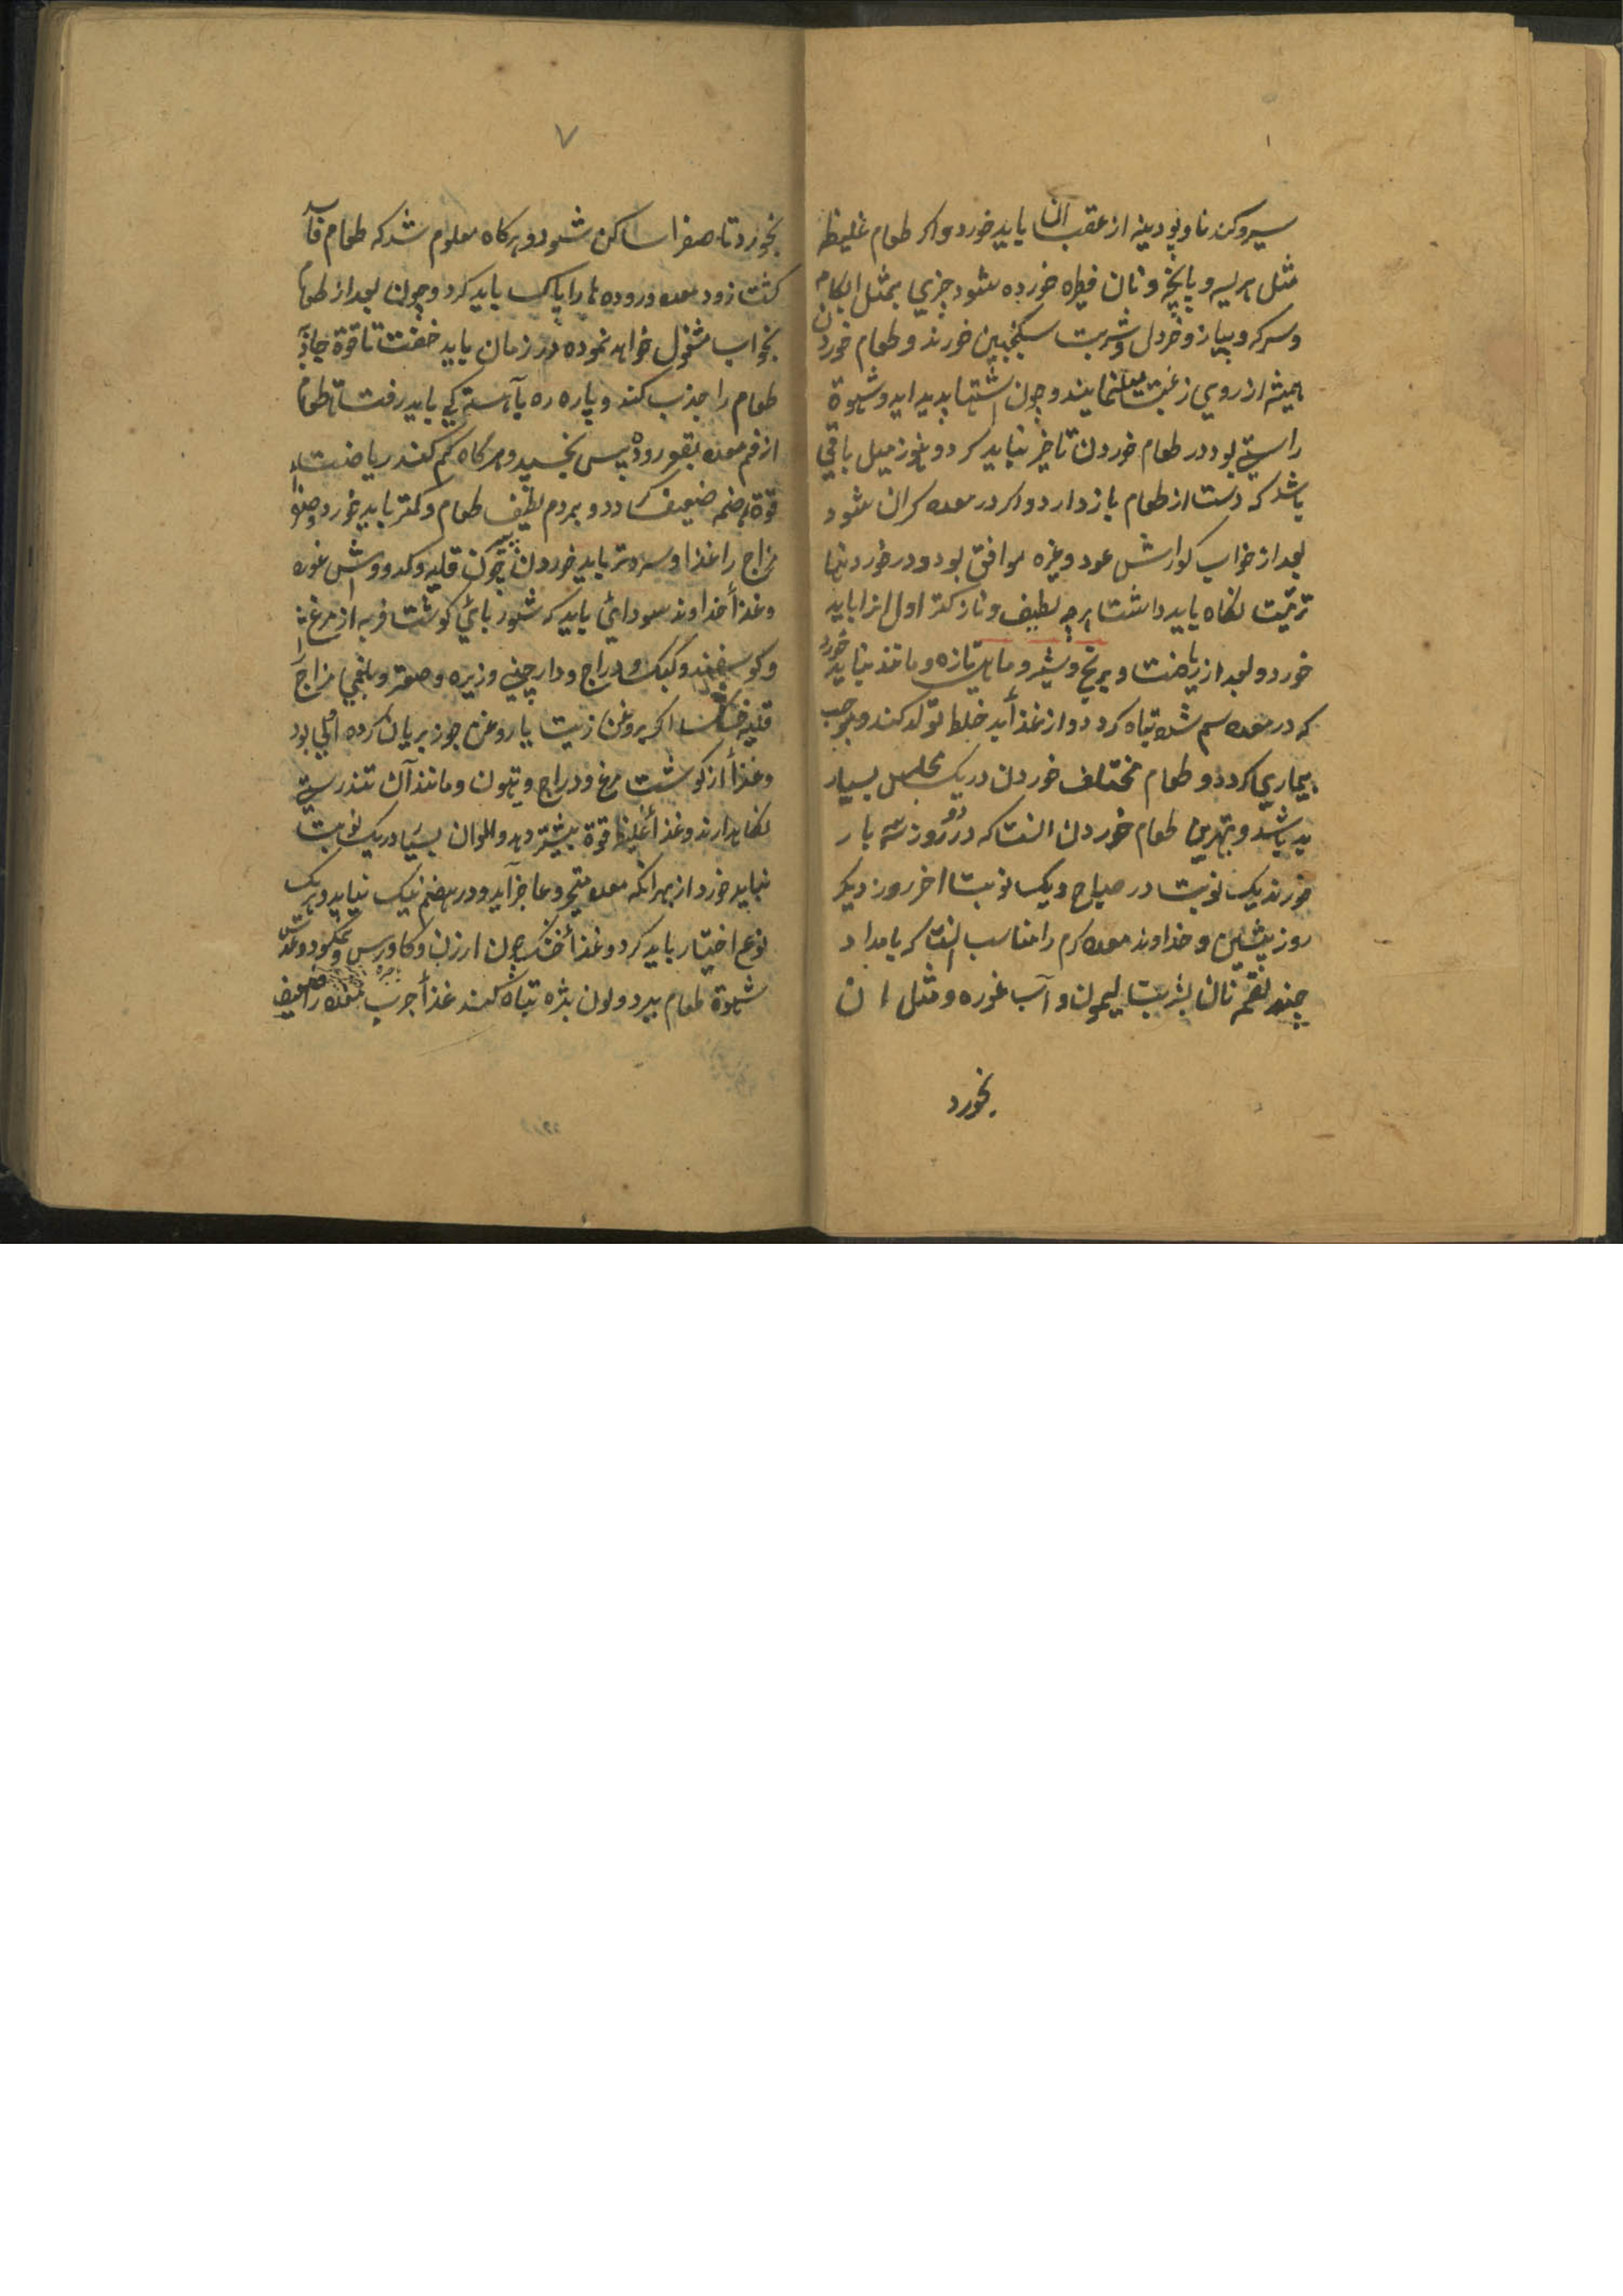 سیر و کندنا و پودینه از عقب آن باید خورد و اکر طعام غلیظ
مثل هریسه و پاپچه و نان فطیره خورده شود چیزی بمثل ابکامه
و سرکه و پیاز و خردل و شربت سکنجبین خورند و طعام خوردن
همیشه از روی رغبت نمایند و چون اشتها بدید اید و شهوة
راستی بود در طعام خوردن تاخیر نباید کرد و هنوز میل باقی
باشد که دست از طعام باز دارد و اکر در معده کران شود
بعد از خواب کوارش عود و غیره موافق بود و در خوردنیها
ترتیب نکاه باید داشت هرچه لطیف و نازکتر اول انرا باید
خورد و بعد از ریاضت و برنج و شیر و ماهی تازه و مانند نباید خورد
که در معده سم شده تباه کردد و از غذا بد خلط تولد کند و موجب
بیماری کردد و طعام مختلف خوردن در یک مجلس بسیار
بد باشد و بهترین طعام خوردن انست که در دو روز سه بار
خورند یک نوبت در صباح و یک نوبت اخر روز دیکر
روز پیشین و خداوند معده کرم را مناسب انست که بامداد
چند لقمه نان بشربت لیمون و آب غوره و مثل ان
بخورد
۷
بخورد تا صفرا ساکن شود و هرکاه معلوم شد که طعام فاسد
کشت زود معده و روده ها را پاک باید کرد و چون بعد از طعام
بخواب مشغول خواهد نموده در زمان باید خفت تا قوة جاذبه
طعام را جذب کند و پاره ره بآهستکی باید رفت تا طعام
از فم معده بقعر رود پس بخسپد و هرکاه کم کنند ریاضت را
قوة هضم ضعیف کردد و بمردم لطیف طعام کمتر باید خورد و صفرا
مزاج را غذا و سردتر باید خوردن چون قلیه کدو و آش غوره
و غذأ خداوند سودائی باید که شوربائی کوشت فربه از مرغ
و کوسفند و کبک و دراج و دارچینی و زیره و صعتر و بلغمی مزاج را
قلیه خشک اکر بروغن زیت یا روغن جوز بریان کرده اولی بود
و غذأ از کوشت مرغ و دراج و تیهون و مانند آن تندرستی
نکاهدارند و غذأ غلیظ قوة بیشتر دهد و الوان بسیار در یک نوبت
نباید خورد از بهر انکه معده متحیر و عاجز آید و در هضم نیک نیاید و هر یک
نوع اختیار باید کرد و غذأ خشک چون ارزن و کاورس و نمکسود و عدس
شهوة طعام ببرد و لون بشره تباه کند غذأ چرب معده را ضعیف